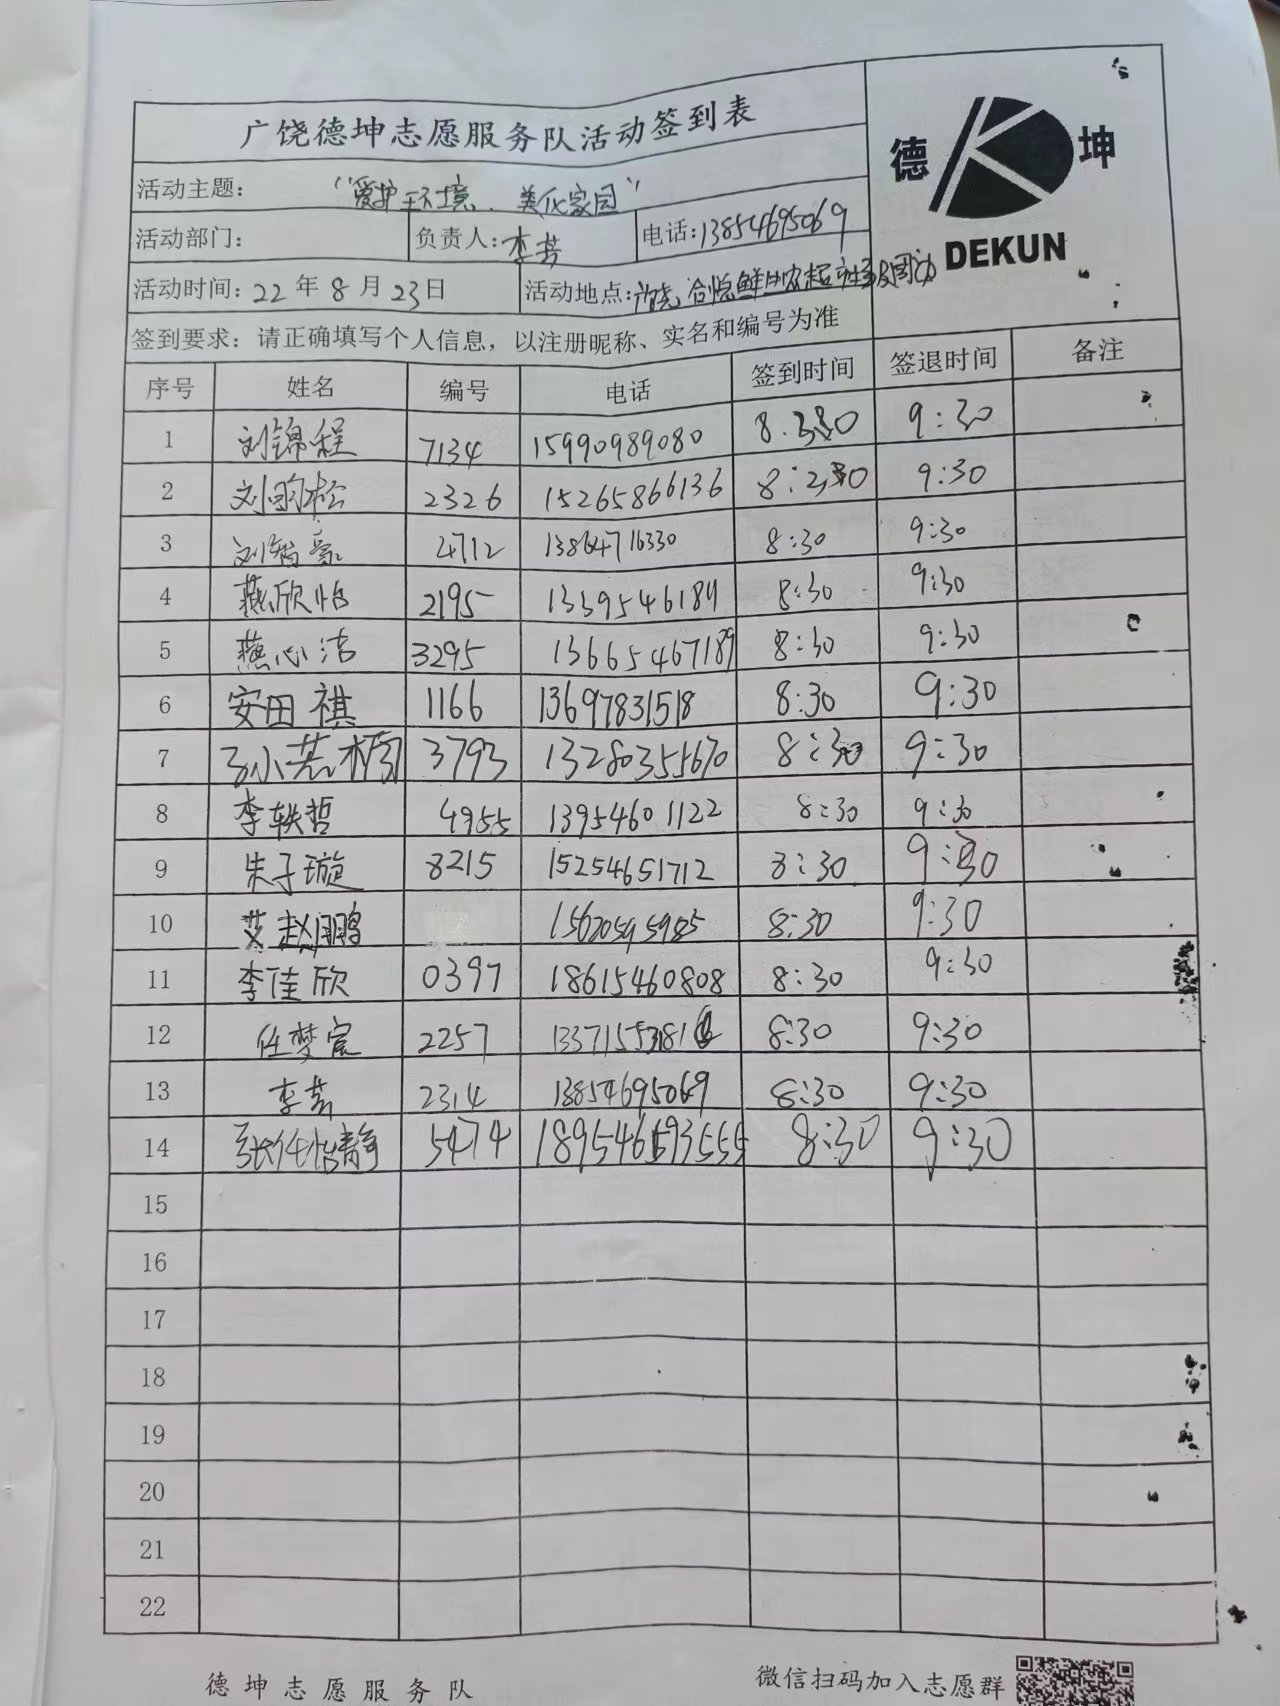 广饶德坤志愿服务队活动签到表
德 坤
DEKUN
活动主题： “爱护环境、美化家园”
活动部门： 负责人：李芸 电话：13854695069
活动时间：22年8月23日 活动地点：
签到要求：请正确填写个人信息，以注册昵称、实名和编号为准
序号 姓名 编号 电话 签到时间 签退时间 备注
1 刘锦程 7134 15990989080 9:30
2 2326 15265866136 9:30
3 4712 13864716330 8:30 9:30
4 燕欣怡 2195 8:30 9:30
5 燕心洁 3295 13665467189 8:30 9:30
6 安田祺 1166 13697831518 8:30 9:30
7 3793 13280355670 8:30 9:30
8 李轶哲 4955 13954601122 8:30 9:30
9 朱子璇 8215 15254651712 8:30 9:30
10 艾赵鹏 8:30 9:30
11 李佳欣 0397 18615460808 8:30 9:30
12 任梦宸 2257 8:30 9:30
13 李芸 2314 13854695069 8:30 9:30
14 5474 8:30 9:30
15
16
17
18
19
20
21
22
德坤志愿服务队 微信扫码加入志愿群